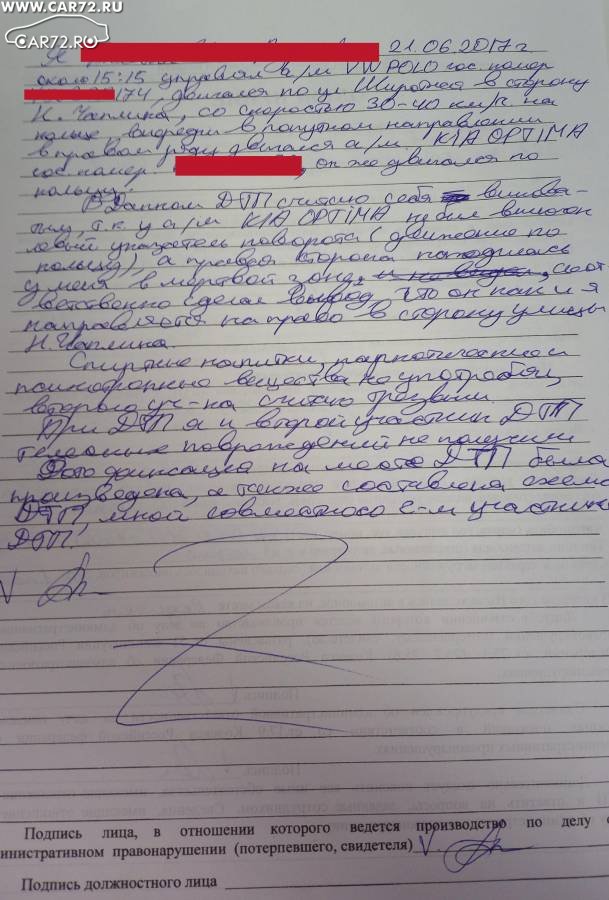 WWW.CAR72.RU
CAR72.RU
Я 21.06.2017 г
около 15:15 управлял а/м VW POLO гос. номер
174, двигался по ул Широтная в сторону
Н. Чаплина, со скоростью 30-40 км/ч на
кольце, впереди в попутном направлении
в правом ряду двигался а/м. KIA OPTIMA
гос. номер. , он же двигался по
кольцу.
В данном ДТП считаю себя винова-
тым, т.к у а/м KIA OPTIMA не был включен
левый указатель поворота (движение по
кольцу), а правая сторона находилась
у меня в мертвой зоне, соот
ветственно сделал вывод, что он как и я
направляется направо в сторону улицы
Н. Чаплина.
Спиртные напитки, наркотические и
психотропные вещества не употреблял,
второго уч-ка считаю трезвым.
При ДТП я и второй участник ДТП
телесных повреждений не получили
Фотофиксация на месте ДТП была
произведена, а также составлена схема
ДТП, мной совместно с 2-м участник
ДТП.
V
Подпись лица, в отношении которого ведется производство по делу о
министративном правонарушении (потерпевшего, свидетеля) V
Подпись должностного лица